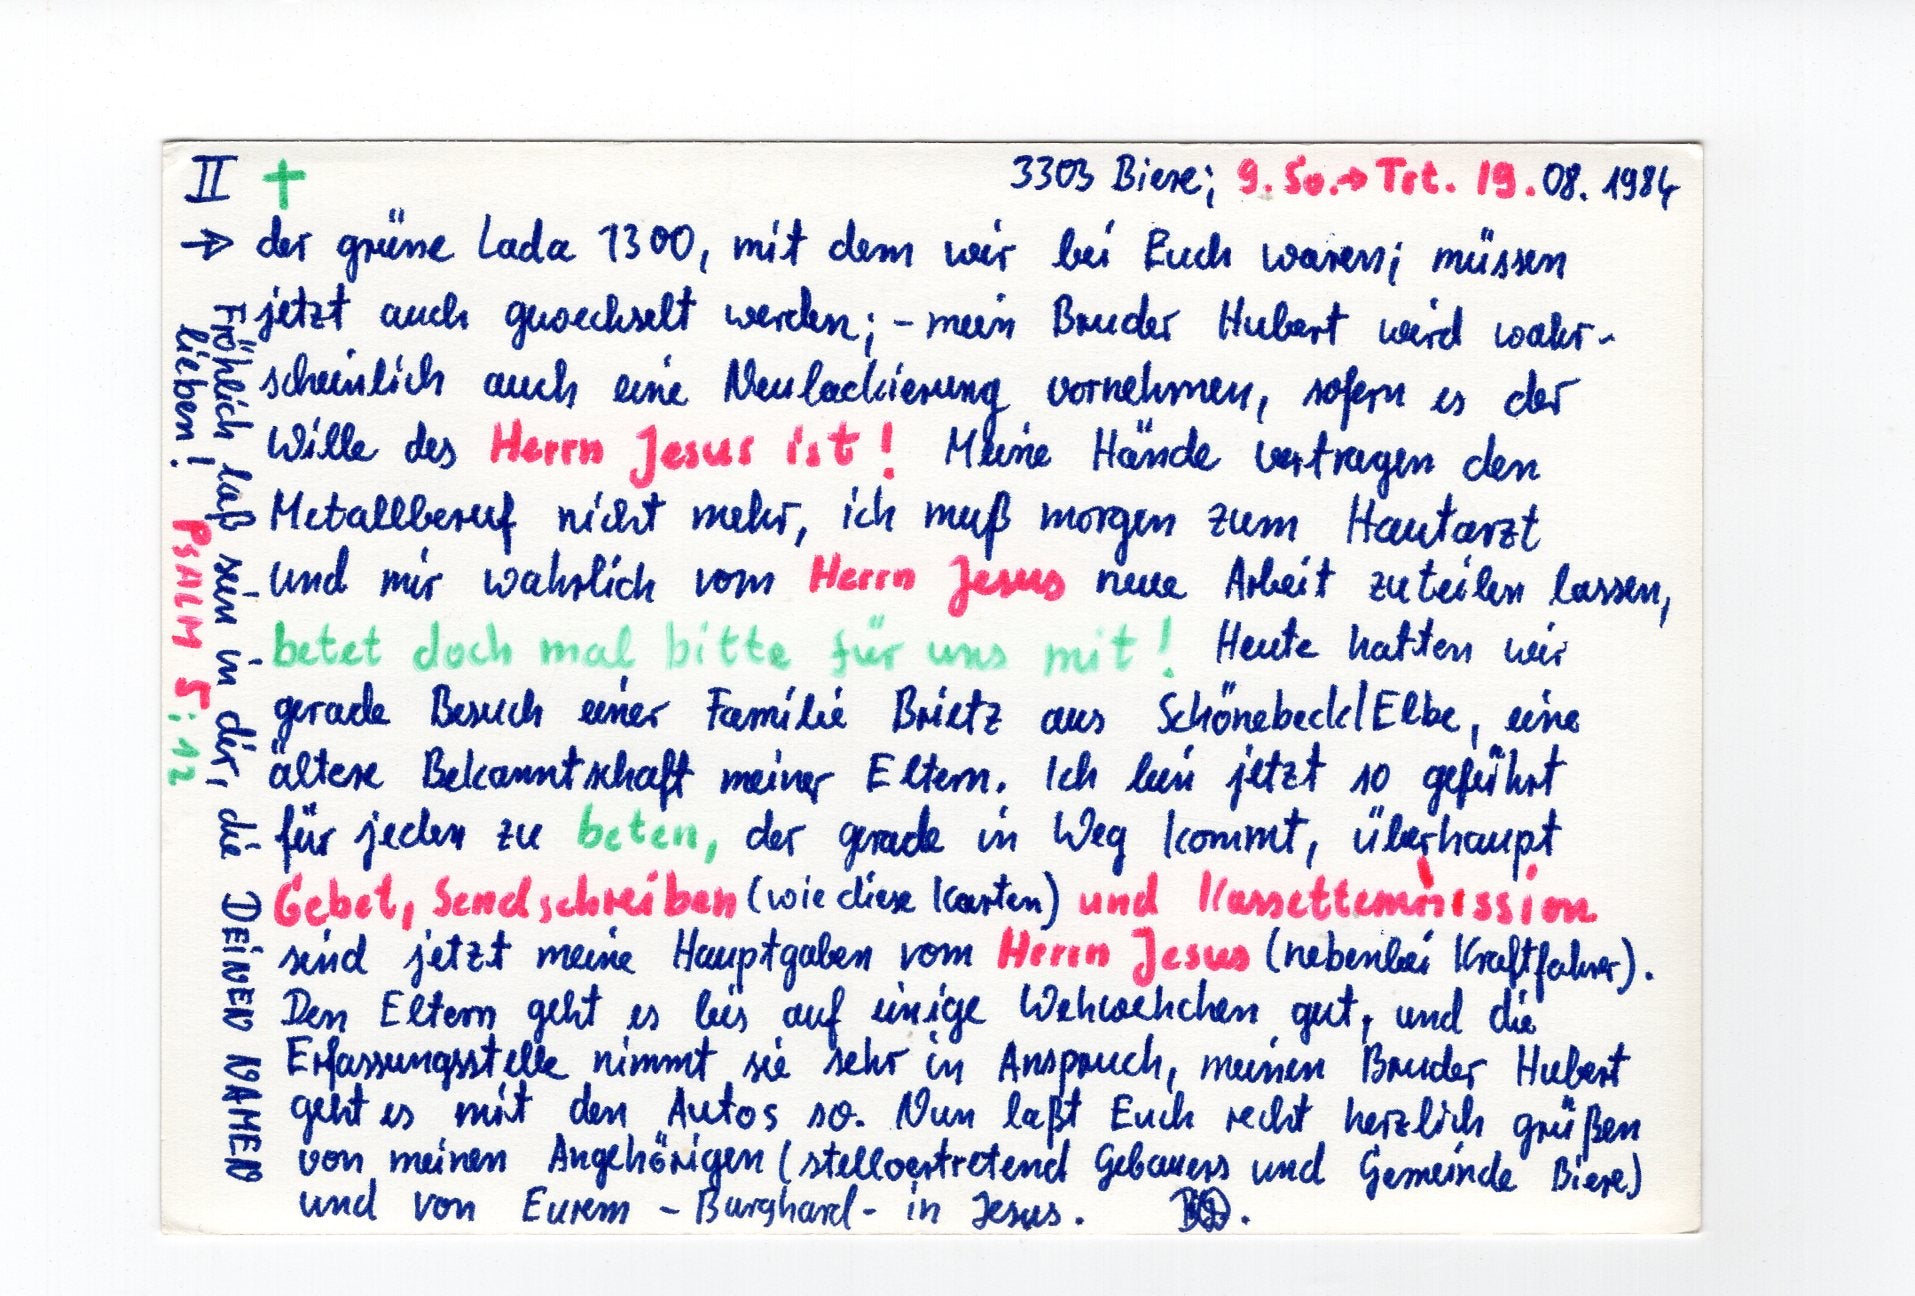 II ✝ 3303 Biere; 9. So.→Trt. 19.08. 1984
→ der grüne Lada 1300, mit dem wir bei Euch waren; müssen
jetzt auch gewechselt werden; - mein Bruder Hubert wird wahr-
scheinlich auch eine Neulackierung vornehmen, sofern es der
Wille des Herrn Jesus ist! Meine Hände vertragen den
Metallberuf nicht mehr, ich muß morgen zum Hautarzt
und mir wahrlich vom Herrn Jesus neue Arbeit zuteilen lassen,
betet doch mal bitte für uns mit! Heute hatten wir
gerade Besuch einer Familie Brietz aus Schönebeck/Elbe, eine
ältere Bekanntschaft meiner Eltern. Ich bin jetzt so geführt
für jeden zu beten, der gerade in Weg kommt, überhaupt
Gebet, Sendschreiben (wie diese Karten) und Kassettenmission
sind jetzt meine Hauptgaben vom Herrn Jesus (nebenbei Kraftfahrer).
Den Eltern geht es bis auf einige Wehwehchen gut, und die
Erfassungsstelle nimmt sie sehr in Anspruch, meinen Bruder Hubert
geht es mit den Autos so. Nun laßt Euch recht herzlich grüßen
von meinen Angehörigen (stellvertretend Gebauers und Gemeinde Biere)
und von Eurem - Burghard - in Jesus.
Fröhlich laß sein in dir, die DEINEN NAMEN
lieben! PSALM 5:12